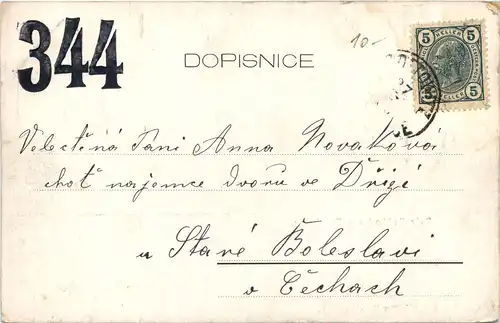 344
DOPISNICE
10.-
5 HELLER 5
5 HELLER 5
Velectěná Paní Anna Nováková
choť najemce dvoru ve Dřízi
u Staré Boleslavi
v Čechach